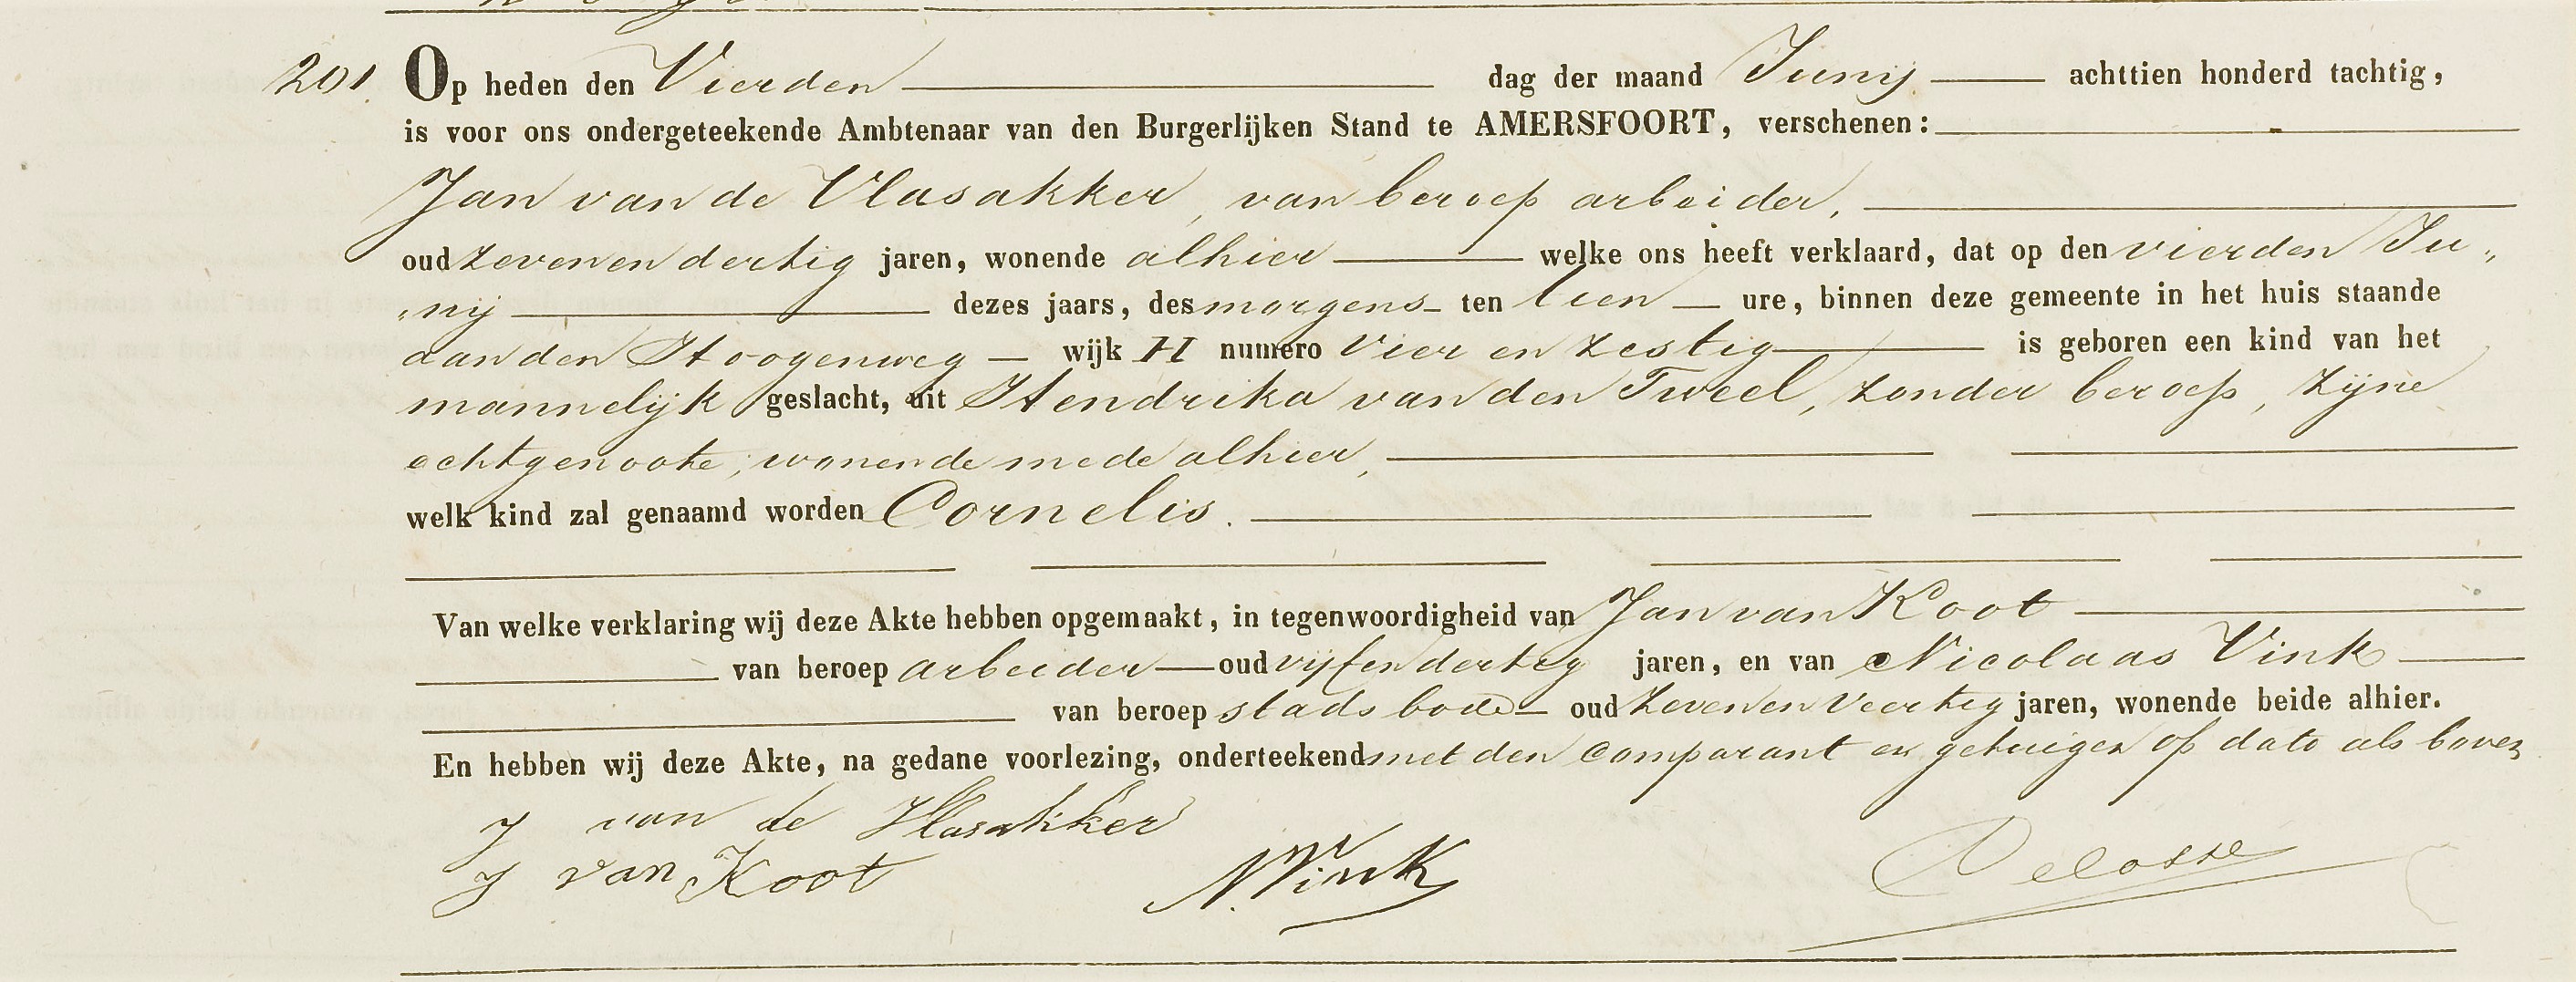 201. Op heden den Vierden dag der maand Junij achttien honderd tachtig,
is voor ons ondergeteekende Ambtenaar van den Burgerlijken Stand te AMERSFOORT, verschenen:
Jan van de Vlasakker, van beroep arbeider,
oud zevenendertig jaren, wonende alhier welke ons heeft verklaard, dat op den vierden Ju„
„nij dezes jaars, des morgens ten tien ure, binnen deze gemeente in het huis staande
aan den Hoogenweg wijk H numero Vier en zestig is geboren een kind van het
mannelijk geslacht, uit Hendrika van den Tweel, zonder beroep, zijne
echtgenoote, wonende mede alhier,
welk kind zal genaamd worden Cornelis.
Van welke verklaring wij deze Akte hebben opgemaakt, in tegenwoordigheid van Jan van Koot
van beroep arbeider oud vijfendertig jaren, en van Nicolaas Vink
van beroep stadsbode oud zevenenveertig jaren, wonende beide alhier.
En hebben wij deze Akte, na gedane voorlezing, onderteekend met den comparant en getuigen op dato als boven
J van de Vlasakker
J van Koot N. Vink